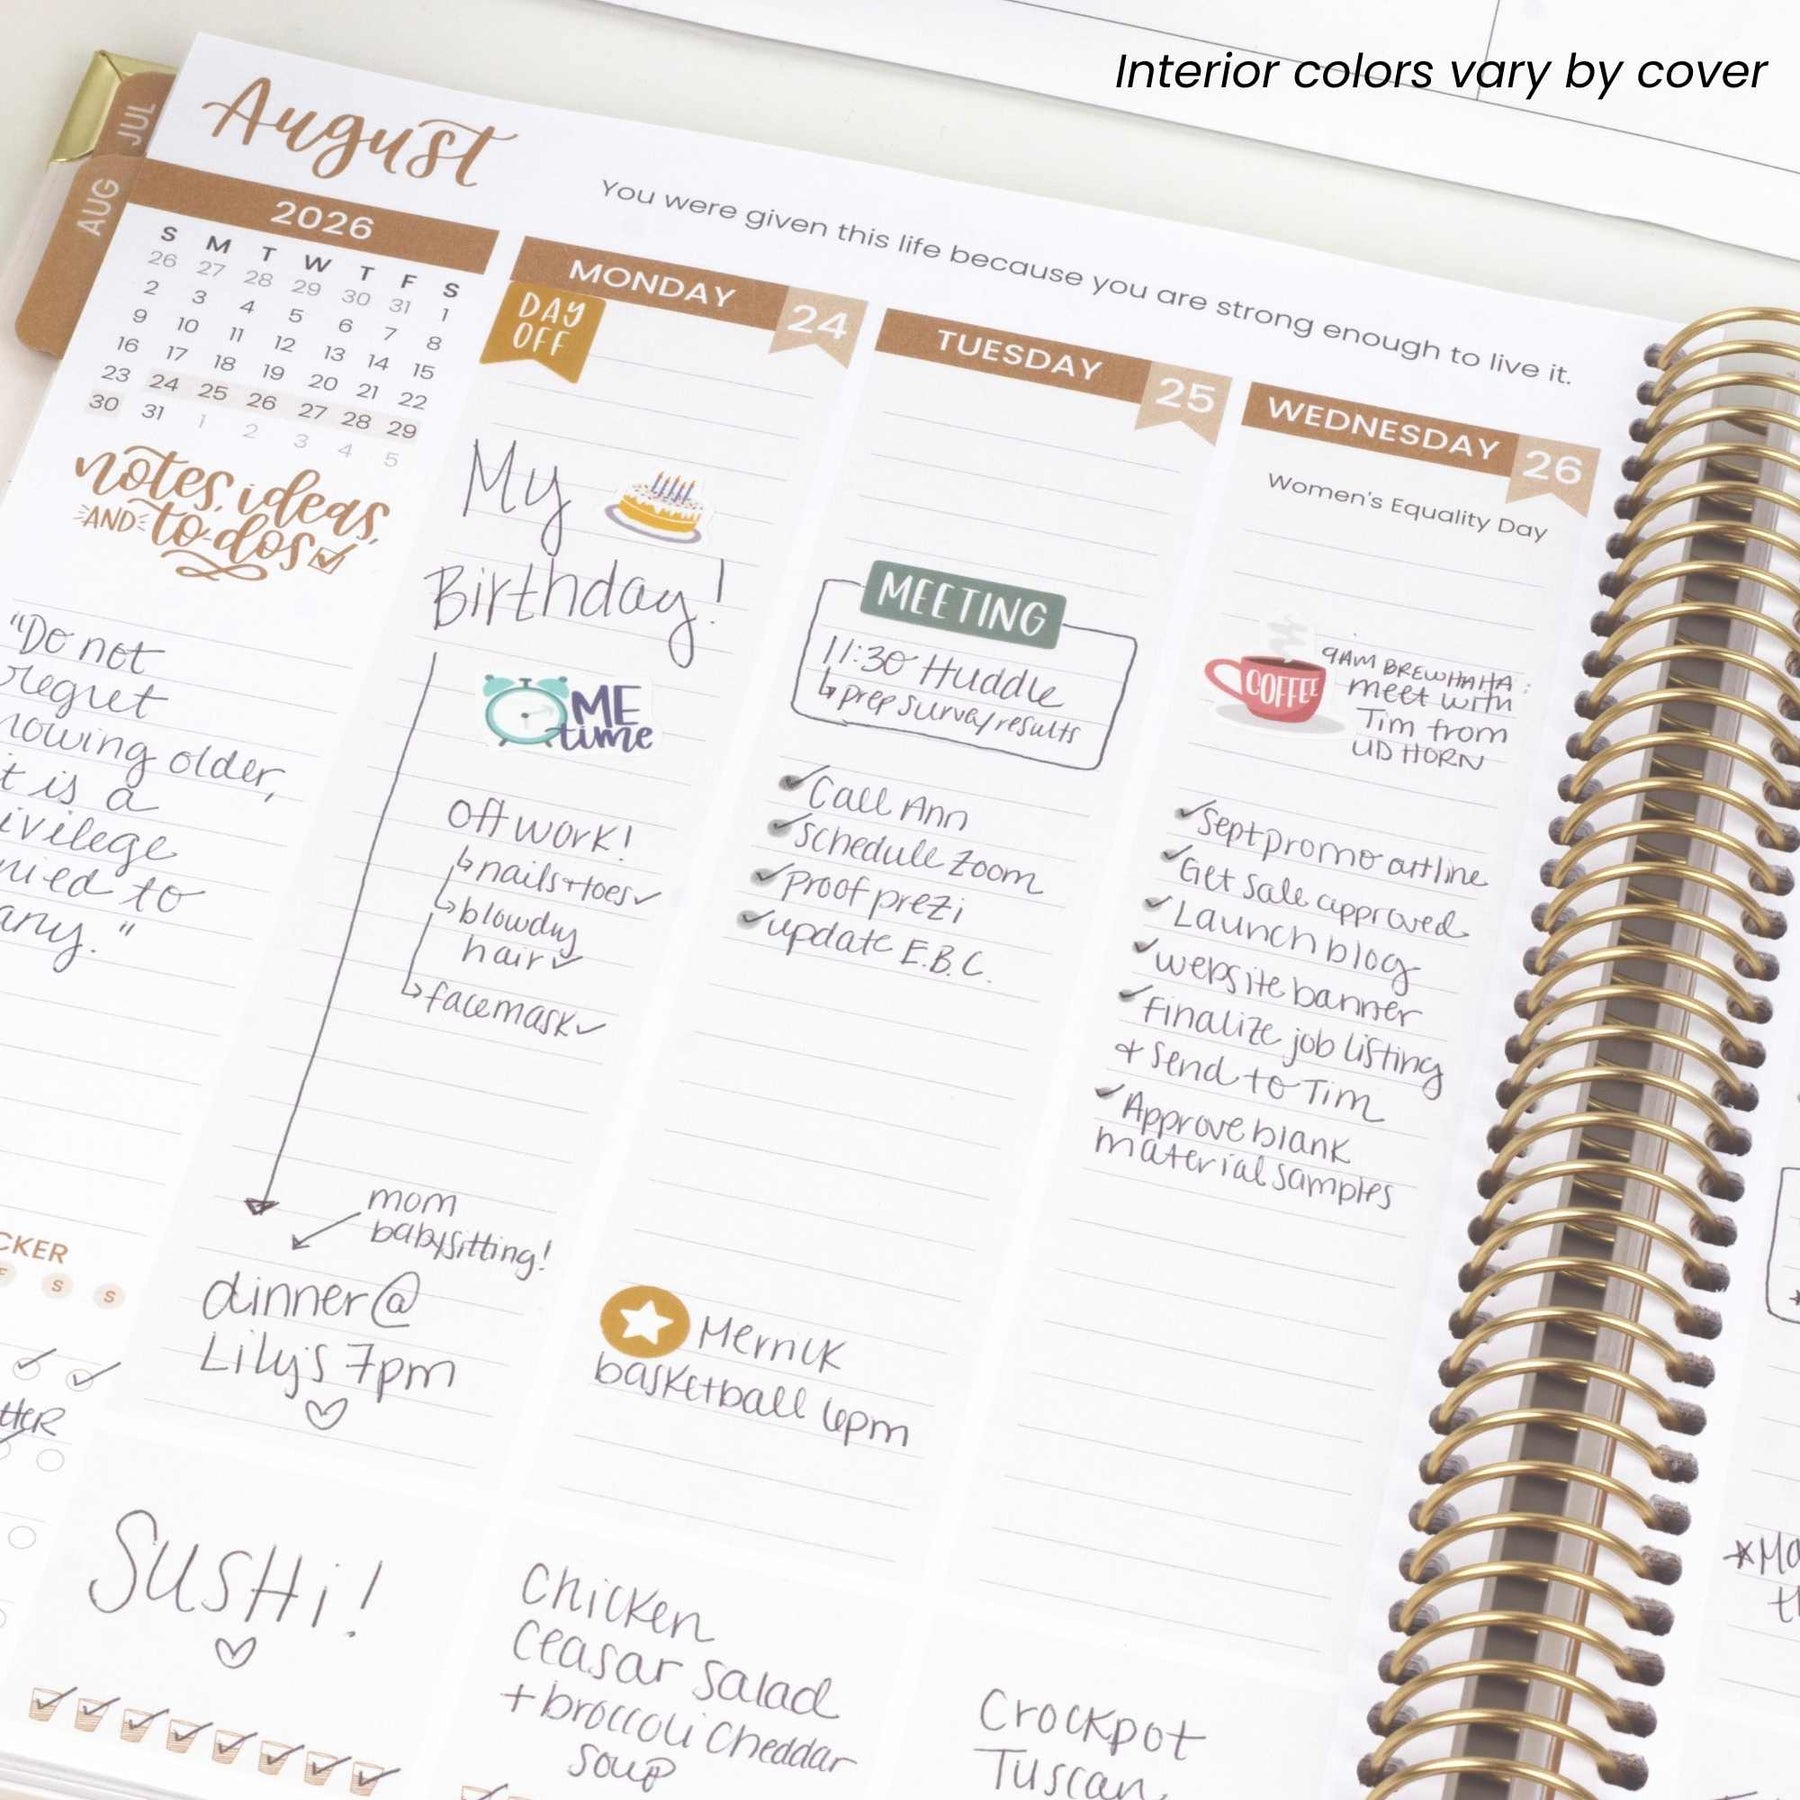 Interior colors vary by cover
JUL
AUG
August
You were given this life because you are strong enough to live it.
2026
S M T W T F S
26 27 28 29 30 31 1
2 3 4 5 6 7 8
9 10 11 12 13 14 15
16 17 18 19 20 21 22
23 24 25 26 27 28 29
30 31 1 2 3 4 5
notes, ideas,
AND to-dos
"Do not
regret
older,
is a
to
"
CKER
S S
MONDAY 24
DAY
OFF
My
Birthday!
ME
time
Off work!
↳ nails + toes ✓
↳ blowdry
hair ✓
↳ facemask ✓
mom
babysitting!
dinner @
Lily's 7pm
♡
SUSHi!
♡
TUESDAY 25
MEETING
11:30 Huddle
↳ prep survey results
✓ Call Ann
✓ schedule zoom
✓ proof prezi
✓ update E.B.C.
Mernick
basketball 6pm
Chicken
Ceasar Salad
+ broccoli cheddar
soup
WEDNESDAY 26
Women's Equality Day
COFFEE
9AM BREWHAHA:
meet with
Tim from
UD HORN
✓ Sept promo outline
✓ Get sale approved
✓ Launch blog
✓ website banner
✓ Finalize job listing
+ send to Tim
✓ Approve blank
material samples
Crockpot
Tuscan